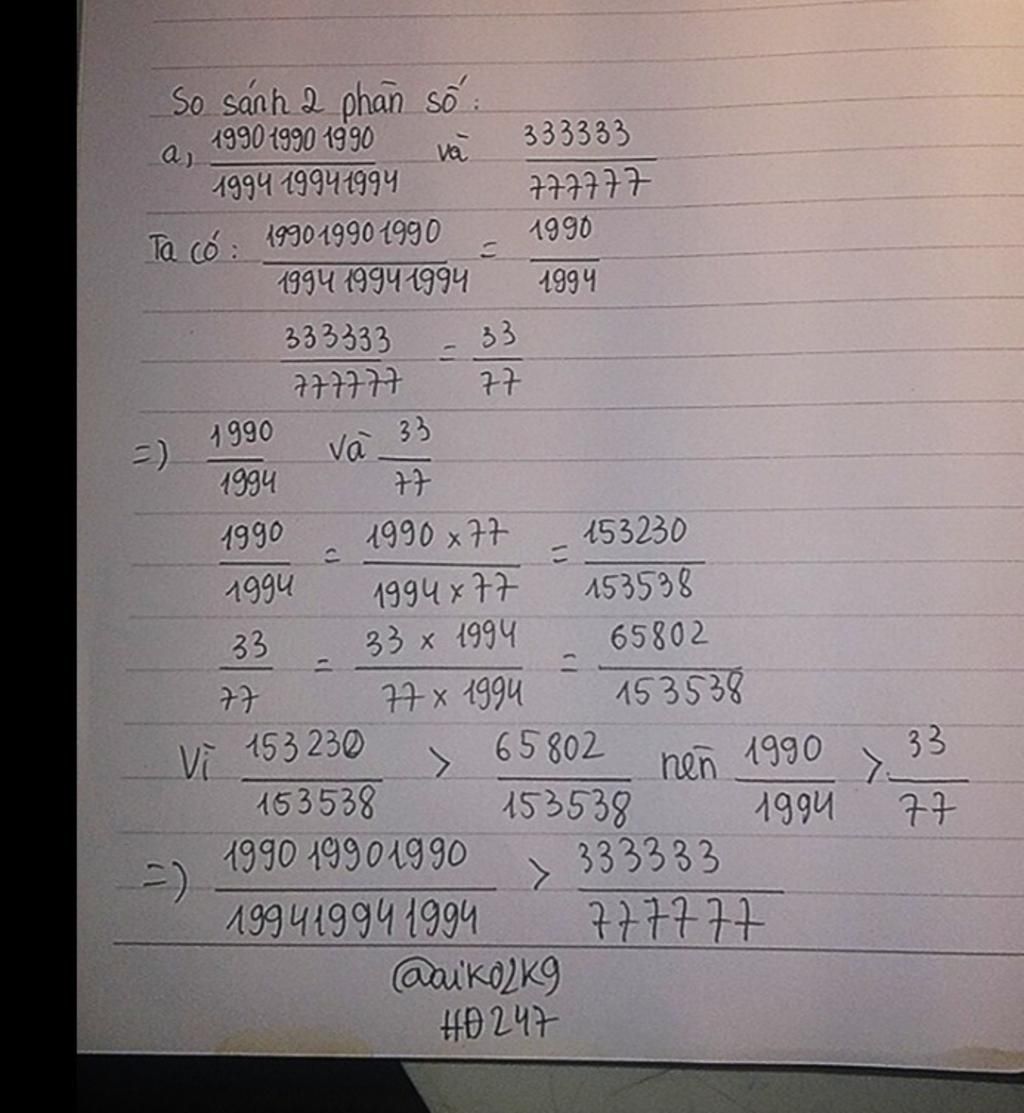 So sánh 2 phân số:
a, 199019901990/199419941994 và 333333/777777
Ta có: 199019901990/199419941994 = 1990/1994
333333/777777 = 33/77
=) 1990/1994 và 33/77
1990/1994 = 1990 x 77/1994 x 77 = 153230/153538
33/77 = 33 x 1994/77 x 1994 = 65802/153538
Vì 153230/153538 > 65802/153538 nên 1990/1994 > 33/77
=) 199019901990/199419941994 > 333333/777777
@aiko2k9
HĐ247